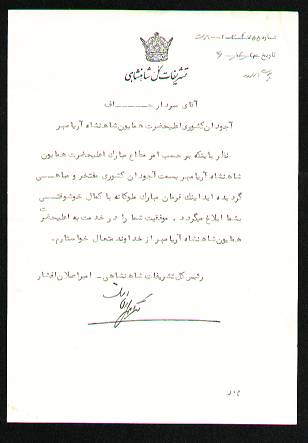 تشریفات کل شاهنشاهی
شماره
تاریخ
آقای سردار جـــــاف
آجودان کشوری اعلیحضرت همایون شاهنشاه آریامهر
نظر باینکه بر حسب امر مطاع مبارک اعلیحضرت همایون
شاهنشاه آریامهر بسمت آجودان کشوری مفتخر و مباهـــی
گردیده اید اینک فرمان مبارک ملوکانه با کمال خوشوقتـــی
بشما ابلاغ میگردد . موفقیت شما را در خدمت به اعلیحضرت
همایون شاهنشاه آریامهر از خداوند متعال خواستارم .
رئیس کل تشریفات شاهنشاهی - امیراصلان افشار